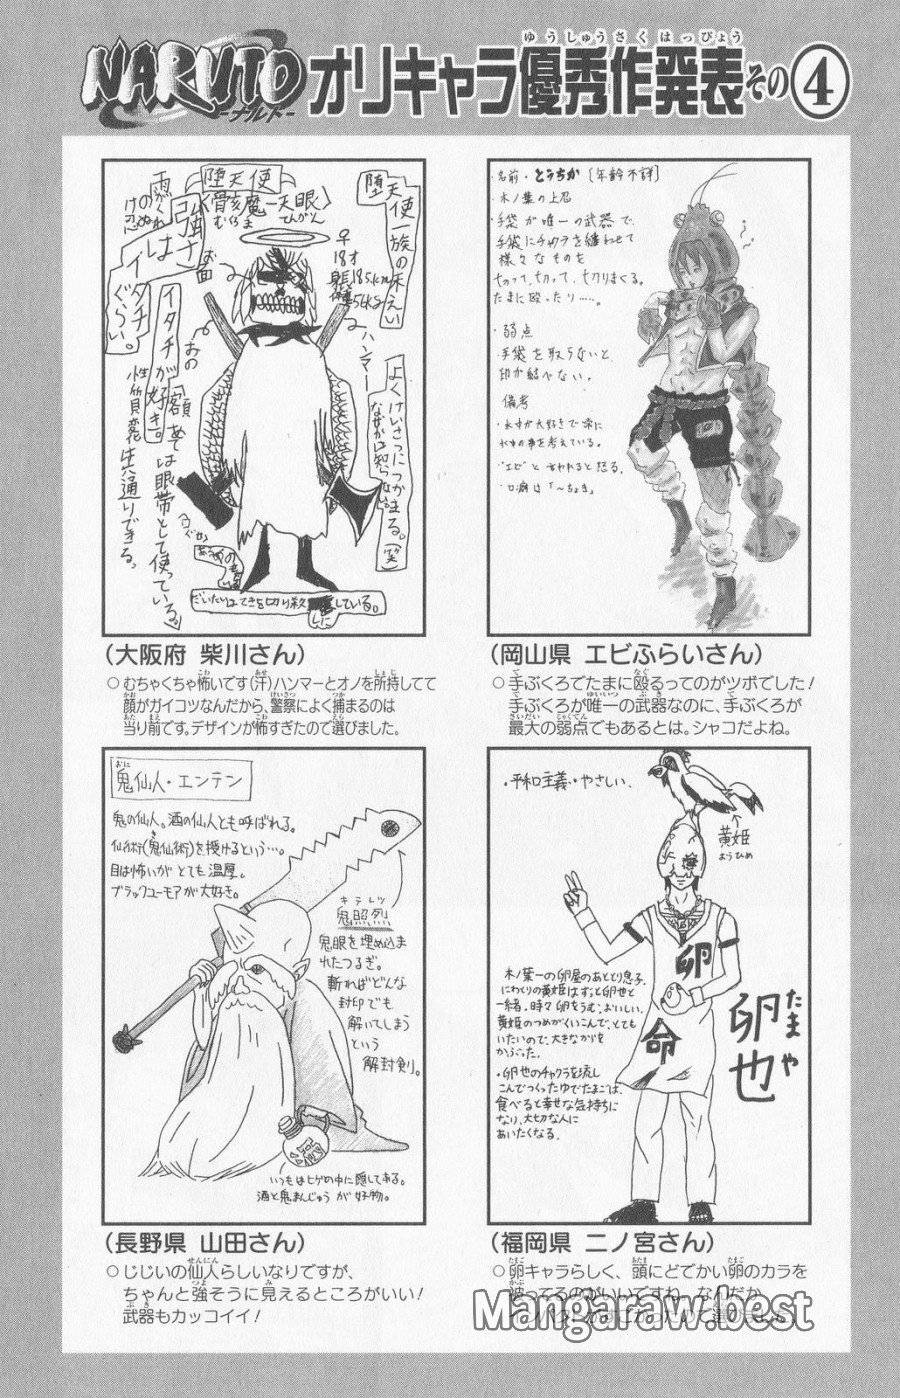 NARUTO
-ナルト-
オリキャラ優秀作発表その④
ゆうしゅうさくはっぴょう
堕天使
〈骨骸魔一天眼〉
むくろま
てんがん
堕天使一族の末えい
雨がくれの
け忍
強さは
イタチ
ぐらい。
お面
♀
18才
ハンマー
おの
イタチが好き。
性質変化共通りできる。
額あては眼帯として使っている。
よくけいさつにつかまる。(笑)
なぜかは知らない。
だいたいはてきを切り殺している。
(大阪府 柴川さん)
○むちゃくちゃ怖いです(汗)ハンマーとオノを所持してて
顔がガイコツなんだから、警察によく捕まるのは
当り前です。デザインが怖すぎたので選びました。
・名前・とうちか〔年齢不詳〕
・木ノ葉の上忍
・手袋が唯一の武器で、
手袋にチャクラを纏わせて
様々なものを
切って、切って、切りまくる。
たまに殴ったり……。
・弱点
・手袋を取らないと
印が結べない。
備考
"エビ"と言われると怒る。
・口癖は「〜ちょき」
(岡山県 エビふらいさん)
○手ぶくろでたまに殴るってのがツボでした!
手ぶくろが唯一の武器なのに、手ぶくろが
最大の弱点でもあるとは。シャコだよね。
おに
鬼仙人・エンテン
鬼の仙人。酒の仙人とも呼ばれる。
仙術(鬼仙術)を授けるという…。
目は怖いがとても温厚。
ブラックユーモアが大好き。
キテレツ
鬼照烈
鬼眼を埋め込ま
れたつるぎ。
斬ればどんな
封印でも
解いてしまう
という
解封剣。
いつもはヒゲの中に隠してある。
酒と鬼まんじゅうが好物。
(長野県 山田さん)
○じじいの仙人らしいなりですが、
ちゃんと強そうに見えるところがいい!
武器もカッコイイ!
・平和主義・やさしい。
黄姫
おうひめ
卵
命
たまや
卵也
木ノ葉一の卵屋のあととり息子。
にわとりの黄姫はずっと卵也と
一緒。時々卵をうむ。おいしい。
黄姫のつめがくいこんで、とても
いたいので、大きなからを
かぶった。
・卵也のチャクラを流し
こんでつくったゆでたまごは、
食べると幸せな気持ちに
なり、大切な人に
あいたくなる。
(福岡県 二ノ宮さん)
○卵キャラらしく、頭にどでかい卵のカラを
被ってるのがいいですね。なんだか
Mangaraw.best